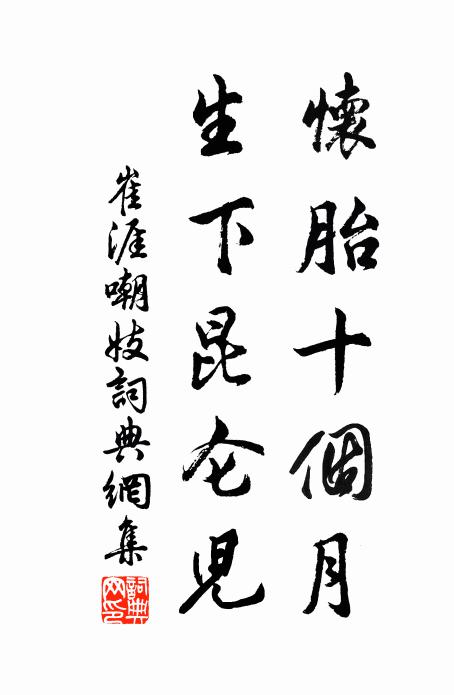 懷胎十個月
生下昆仑兒
崔涯嘲妓詞典網集
詞典网印